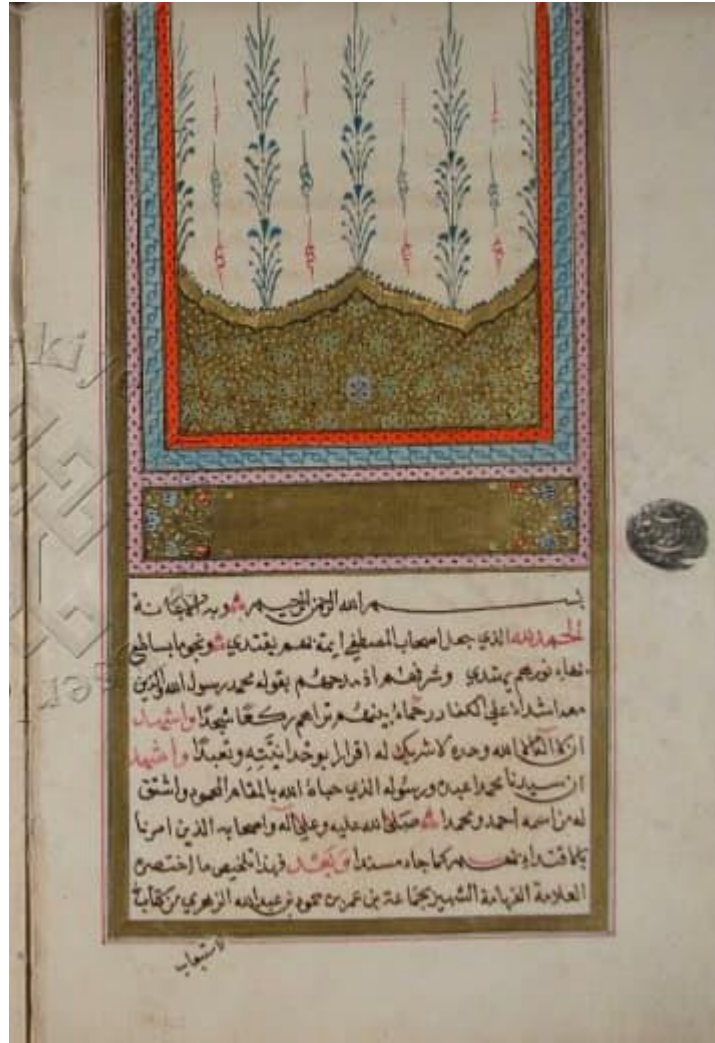 بسم الله الرحمن الرحيم وبه الاعانة
الحمد لله الذي جعل اصحاب المصطفى ايمة بهم يقتدى ونجوما بساطع
نورهم يهتدى وشرفهم اذ مدحهم بقوله محمد رسول الله والذين
معه اشداء على الكفار رحماء بينهم تراهم ركعا سجدا واشهد
ان لا اله الا الله وحده لا شريك له اقرارا بوحدانيته وتعبدا واشهد
ان سيدنا محمدا عبده ورسوله الذي حباه الله بالمقام المحمود واشتق
له من اسمه احمد ومحمدا صلى الله عليه وعلى آله واصحابه الذين امرنا
بالاقتداء بهم كما جاء مسندا وبعد فهذا تلخيص ما اختصره
العلامة الفهامة الشهير بجماعة بن عمر بن حمود بن عبد الله الزهري من كتاب
الاستيعاب